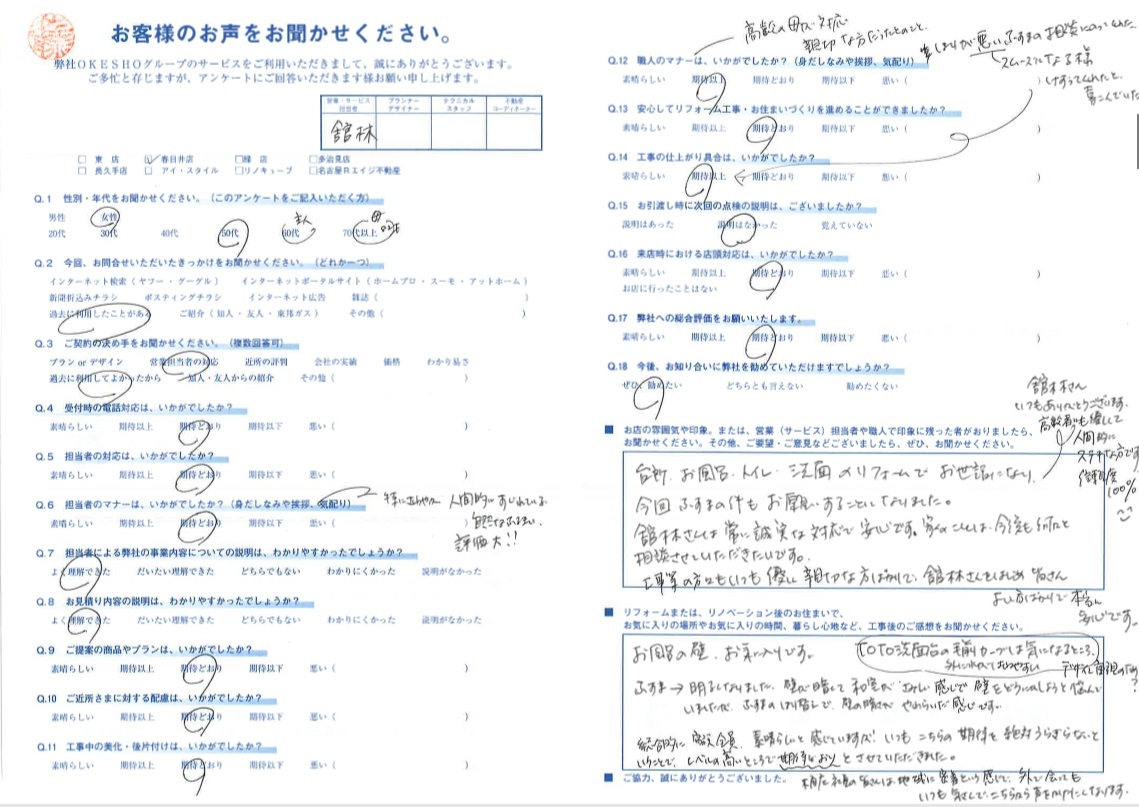 お客様のお声をお聞かせください。
弊社OKESHOグループのサービスをご利用いただきまして、誠にありがとうございます。
ご多忙と存じますが、アンケートにご回答いただきます様お願い申し上げます。
営業・サービス担当者 プランナーデザイナー テクニカルスタッフ 不動産コーディネーター
舘林
東店 春日井店 緑店 多治見店
長久手店 アイ・スタイル リノキューブ 名古屋Rエイジ不動産
Q.1 性別・年代をお聞かせください。(このアンケートをご記入いただく方)
男性 女性
主人 母
20代 30代 40代 50代 60代 70代以上
Q.2 今回、お問合せいただいたきっかけをお聞かせください。(どれか一つ)
インターネット検索(ヤフー・グーグル) インターネットポータルサイト(ホームプロ・スーモ・アットホーム)
新聞折込みチラシ ポスティングチラシ インターネット広告 雑誌( )
過去に利用したことがある ご紹介(知人・友人・東邦ガス) その他( )
Q.3 ご契約の決め手をお聞かせください。(複数回答可)
プラン or デザイン 営業担当者の対応 近所の評判 会社の実績 価格 わかり易さ
過去に利用してよかったから 知人・友人からの紹介 その他( )
Q.4 受付時の電話対応は、いかがでしたか?
素晴らしい 期待以上 期待どおり 期待以下 悪い( )
Q.5 担当者の対応は、いかがでしたか?
素晴らしい 期待以上 期待どおり 期待以下 悪い( )
Q.6 担当者のマナーは、いかがでしたか?(身だしなみや挨拶、気配り)
人間的にすぐれている
評価大!!
素晴らしい 期待以上 期待どおり 期待以下 悪い( )
Q.7 担当者による弊社の事業内容についての説明は、わかりやすかったでしょうか?
よく理解できた だいたい理解できた どちらでもない わかりにくかった 説明がなかった
Q.8 お見積り内容の説明は、わかりやすかったでしょうか?
よく理解できた だいたい理解できた どちらでもない わかりにくかった 説明がなかった
Q.9 ご提案の商品やプランは、いかがでしたか?
素晴らしい 期待以上 期待どおり 期待以下 悪い( )
Q.10 ご近所さまに対する配慮は、いかがでしたか?
素晴らしい 期待以上 期待どおり 期待以下 悪い( )
Q.11 工事中の美化・後片付けは、いかがでしたか?
素晴らしい 期待以上 期待どおり 期待以下 悪い( )
高齢の母が対応
親切な方だったとのこと。
悪いふすまの相談にのってくれた
スムーズになる様
けずってくれたと、
喜こんでいた
Q.12 職人のマナーは、いかがでしたか?(身だしなみや挨拶、気配り)
素晴らしい 期待以上 期待どおり 期待以下 悪い(
Q.13 安心してリフォーム工事・お住まいづくりを進めることができましたか?
素晴らしい 期待以上 期待どおり 期待以下 悪い( )
Q.14 工事の仕上がり具合は、いかがでしたか?
素晴らしい 期待以上 期待どおり 期待以下 悪い( )
Q.15 お引渡し時に次回の点検の説明は、ございましたか?
説明はあった 説明はなかった 覚えていない
Q.16 来店時における店頭対応は、いかがでしたか?
素晴らしい 期待以上 期待どおり 期待以下 悪い( )
お店に行ったことはない
Q.17 弊社への総合評価をお願いいたします。
素晴らしい 期待以上 期待どおり 期待以下 悪い( )
Q.18 今後、お知り合いに弊社を勧めていただけますでしょうか?
ぜひ、勧めたい どちらとも言えない 勧めたくない
舘林さん
いつもありがとうございます。
高齢者にも優しくて
人間的に
ステキな方です
信頼度
100%
■ お店の雰囲気や印象。または、営業(サービス)担当者や職人で印象に残った者がおりましたら、
お聞かせください。その他、ご要望・ご意見などございましたら、ぜひ、お聞かせください。
台所、お風呂、トイレ、洗面のリフォームでお世話になり、
今回ふすまの件もお願いすることになりました。
舘林さんは常に誠実な対応で安心です。家のことは、今後も何だと
相談させていただきたいです。
工事業の方々もいつも優しい親切な方ばかりで、舘林さんをはじめ皆さん
よい方ばかりで本当に
安心です。
■ リフォームまたは、リノベーション後のお住まいで、
お気に入りの場所やお気に入りの時間、暮らし心地など、工事後のご感想をお聞かせください。
お風呂の壁、お気に入りです。
TOTO洗面台の手前カーブは気になるところ。
ふすま→明るくなりました。壁が暗くて和室がさみしい感じで壁をどうにかしようと悩んで
いましたが、ふすまのはり替えで、壁の暗さがやわらいだ感じです。
総合的に 素晴らしいと感じていますが、いつもこちらの期待を絶対うらぎらないと
いうことで、レベルの高いところで期待どおりとさせていただきました。
■ ご協力、誠にありがとうございました。